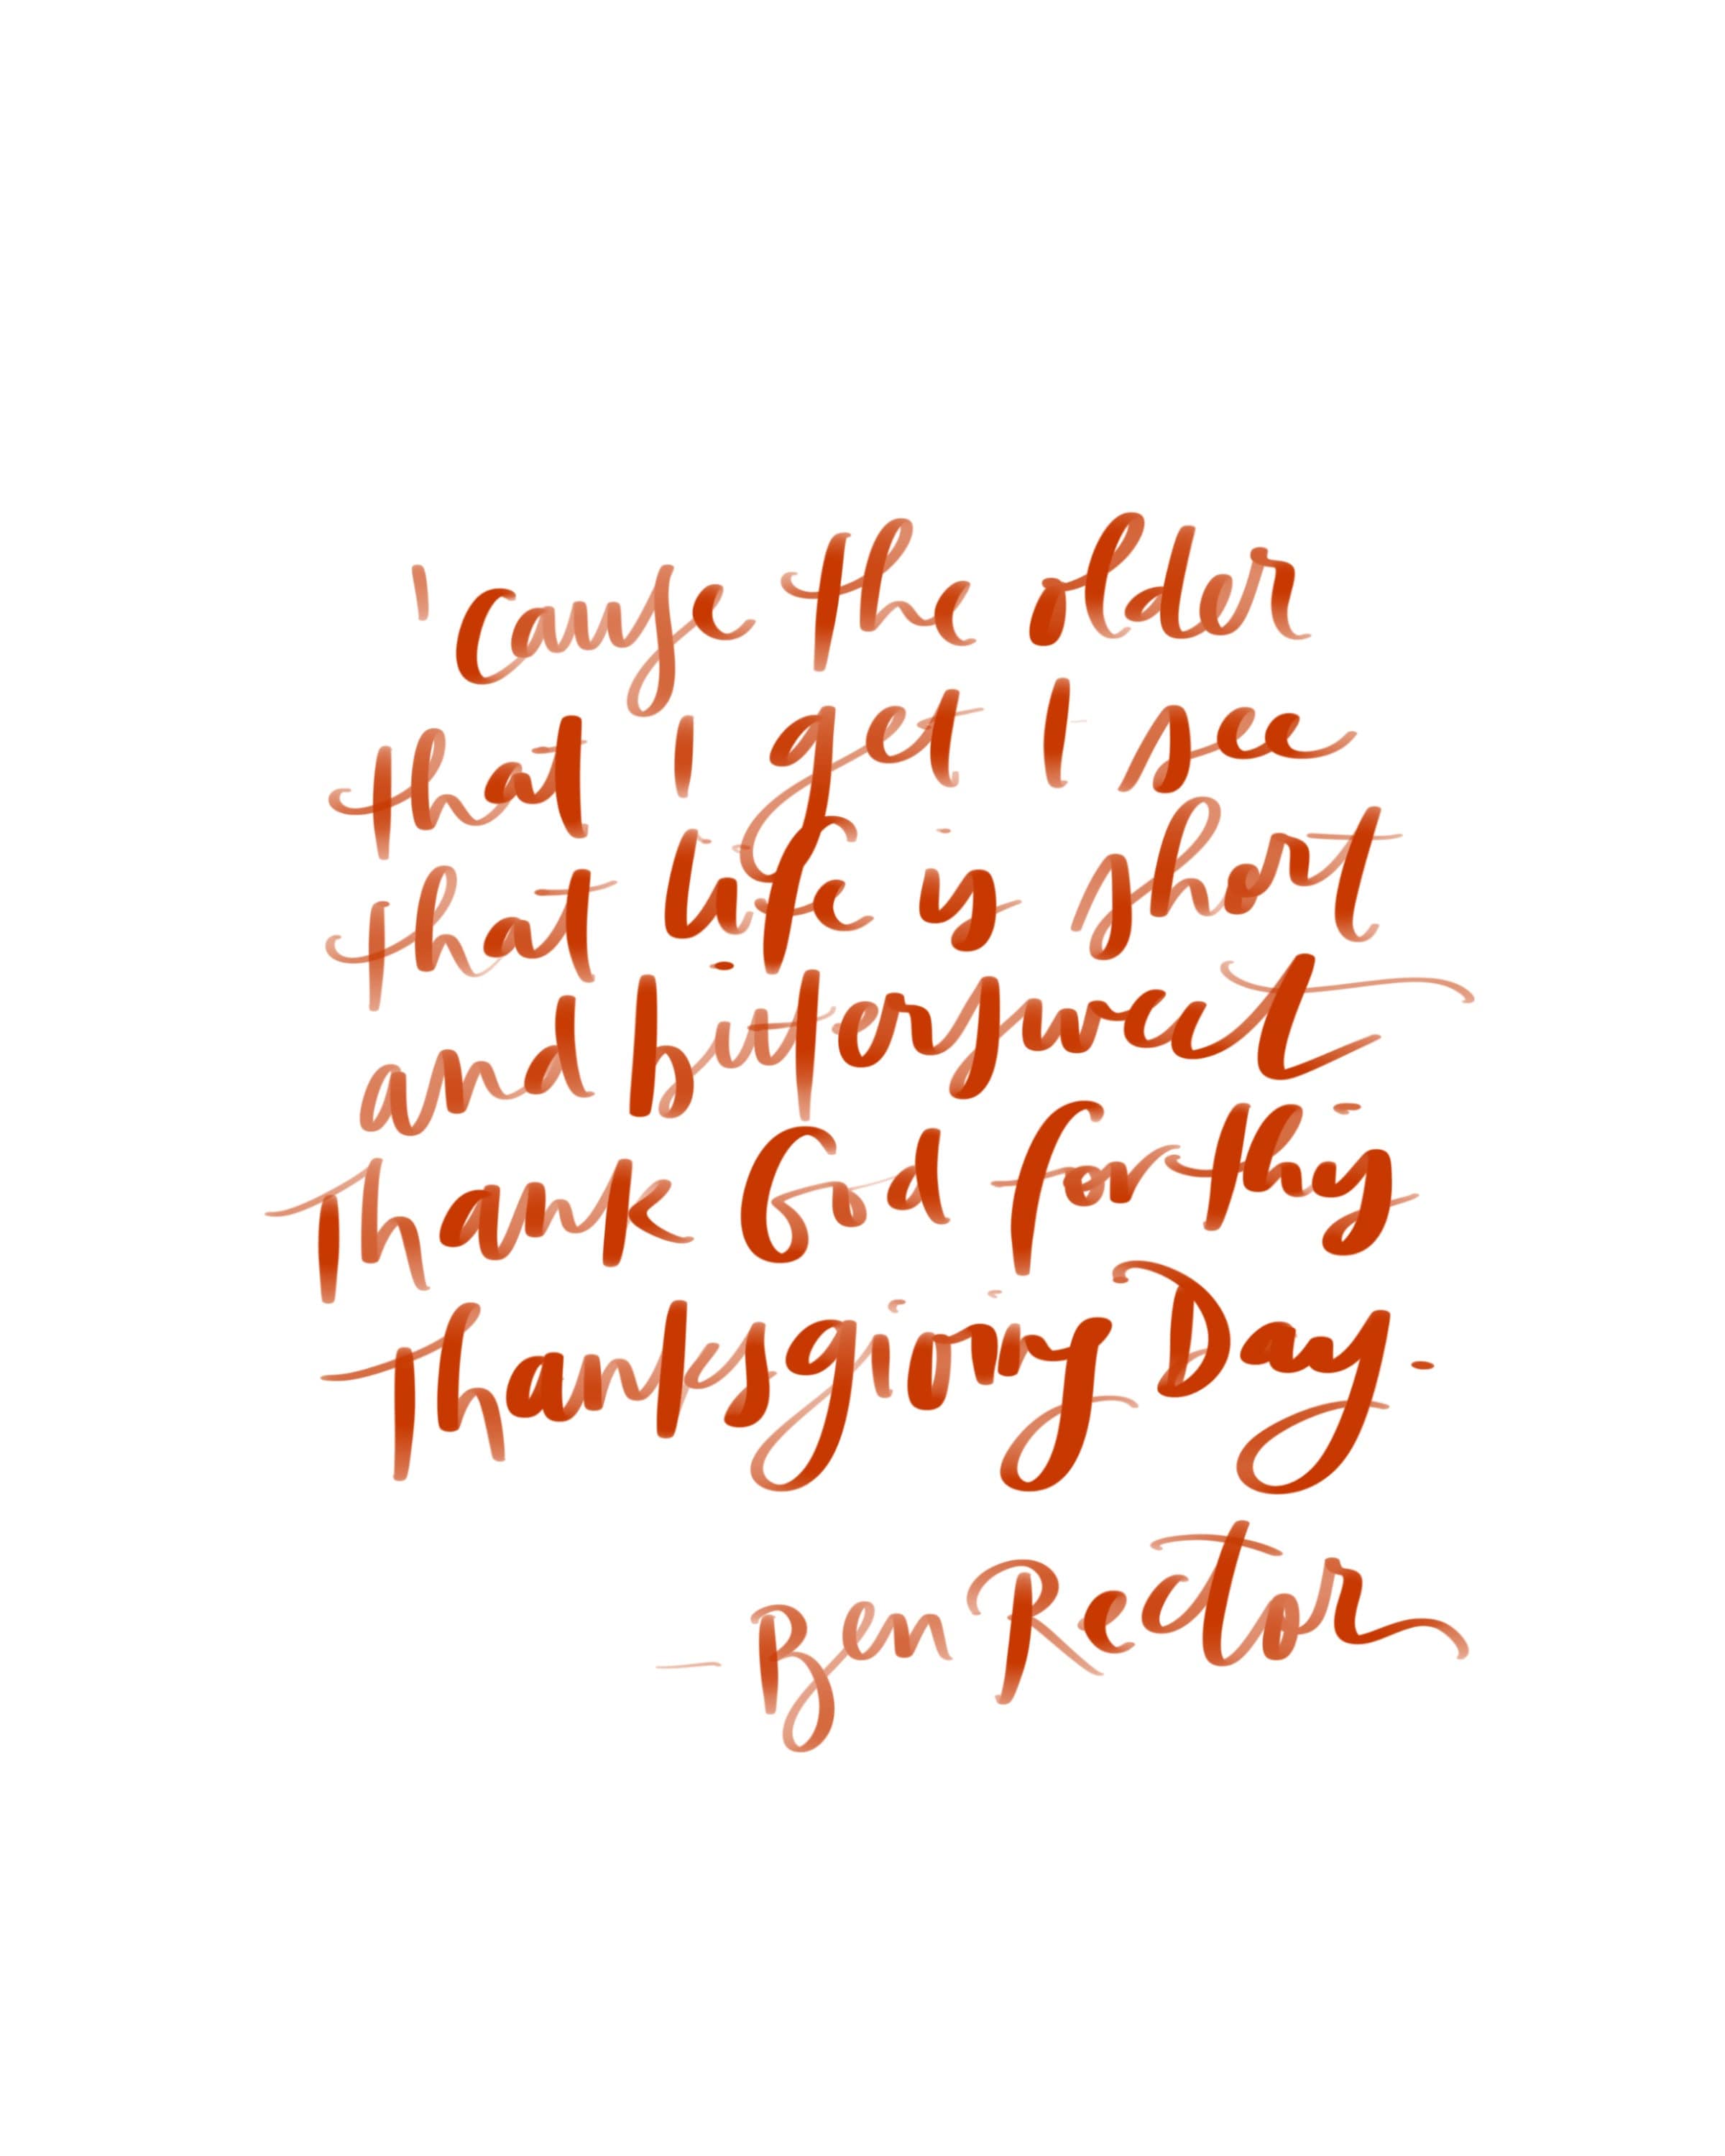 'cause the older
that I get I see
that life is short
and bittersweet
Thank God for this
Thanksgiving Day.
— Ben Rector